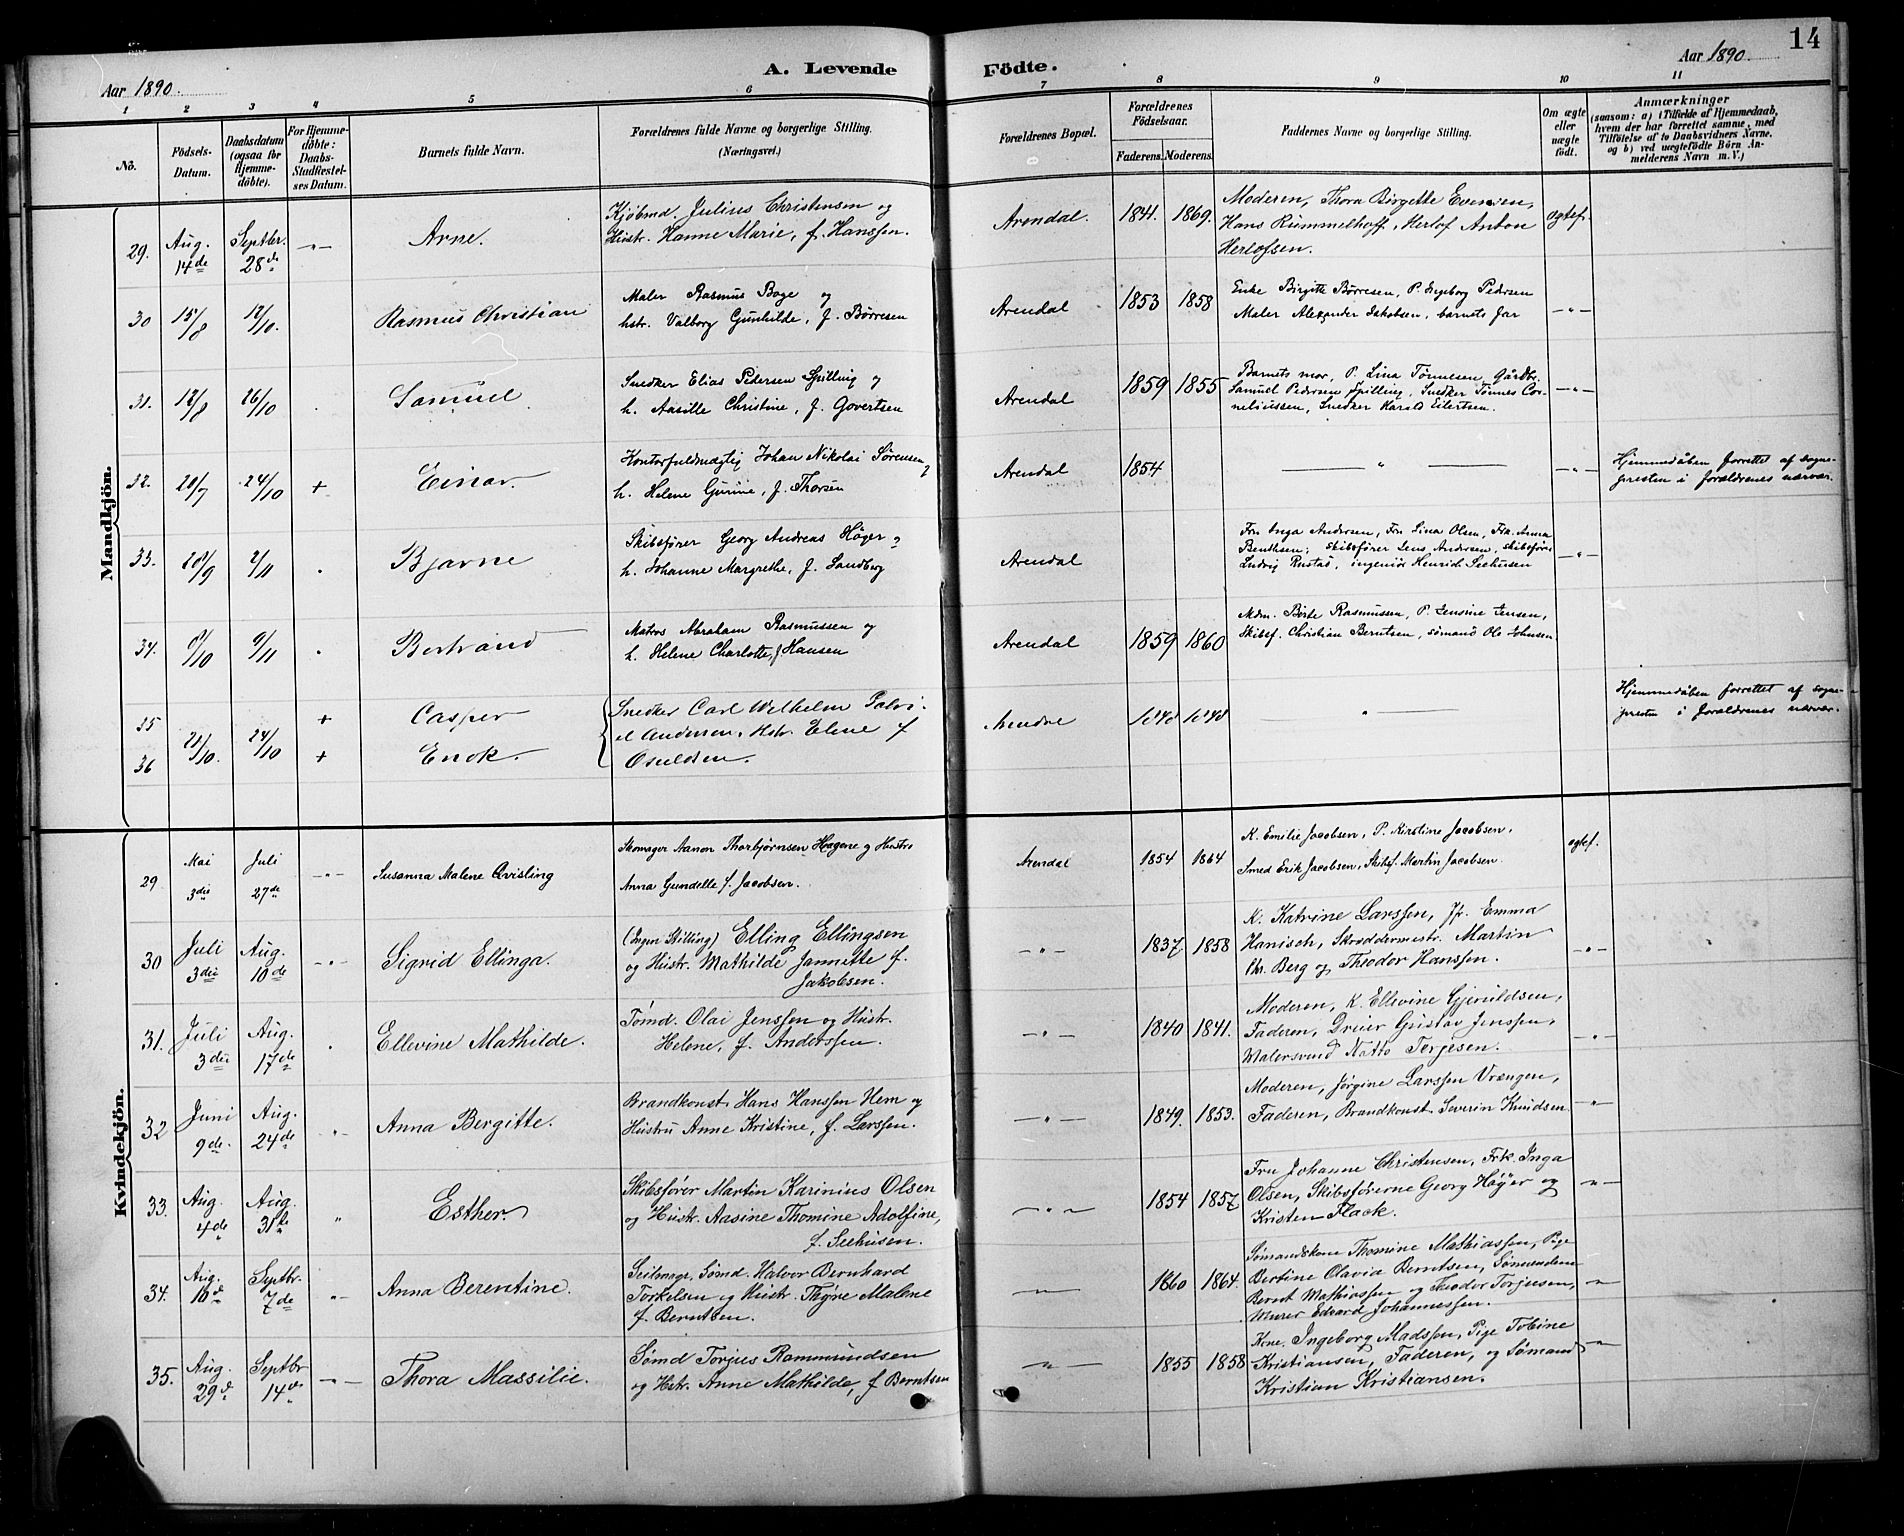 14
Aar 1890.
A. Levende Födte.
Aar 1890.
1 2 3 4 5 6 7 8 9 10 11
No.
Födsels-
Datum.
Daabsdatum
(ogsaa for
Hjemme-
döbte).
For Hjemme-
döbte:
Daabs-
Stadfæstel-
ses Datum.
Barnets fulde Navn.
Forældrenes fulde Navne og borgerlige Stilling.
(Næringsvei.)
Forældrenes Bopæl.
Forældrenes
Födselsaar.
Faderens. Moderens.
Faddernes Navne og borgerlige Stilling.
Om ægte
eller
uægte
födt.
Anmærkninger
(saasom: a) i Tilfælde af Hjemmedaab,
hvem der har forrettet samme, med
Tilföielse af to Daabsvidners Navne,
og b) ved uægtefödte Börn An-
melderens Navn m. V.)
Mandkjön.
29. Aug. 14de Septbr. 28de -"- Arne.
Kjøbmd. Julius Christensen og
Hustr. Hanne Marie, f. Hanssen.
Arendal. 1841. 1869.
Moderen, Thora Birgette Evensen,
Hans Rummelhoff, Herlof Anton
Herlofsen.
ægtef.
30 15/8 12/10. Rasmus Christian
Maler Rasmus Boge og
hstr. Valborg Gunhilde, f. Børresen
Arendal 1853 1858
Enke Birgitte Børresen, P. Ingeborg Pedersen
Maler Alexander Jakobsen, barnets far
-"-
31. 12/8 26/10 . Samuel
Snedker Elias Pedersen Spilling og
h. Aasille Christine, f. Govertsen
Arendal 1859 1855
Barnets mor, P. Lina Tønnesen, Gårdbr.
Samuel Pedersen Spilling, Snedker Tönnes Cor-
neliussen, Snedker Harald Eilertsen.
-"-
32. 20/7 24/10 + Einar.
Kontorfuldmægtig Johan Nikolai Sørensen og
h. Helene Gurine, f. Thorsen
Arendal 1854 — " — -"-
Hjemmedåben forrettet af sogne-
presten i forældrenes nærvær.
33. 20/9 2/11 . Bjarne
Skibsfører Georg Andreas Höyer og
h. Johanne Margrethe, f. Sandberg
Arendal
Fru Inga Andersen, Fru Lina Olsen, Frk. Anna
Benthsen, skibsfører Jens Andersen, skibsfører
Ludvig Rustad, ingeniør Henrich Seehusen
-"-
34. 8/10 9/11 . Bertrand
Matros Abraham Rasmussen og
h. Helene Charlotte, f Hansen
Arendal 1859 1860
Mdm. Berte Rasmussen, P. Jensine Jensen,
Skibsf. Christian Berntsen, sømand Ole Johnsen
35 + Casper
36 21/10. 24/10 + Enok.
Snedker Carl Wilhelm Palvi-
el Andersen, Hstr. Elene f
Osuldsen.
Arendal 1848 1848 — " —
Hjemmedåben forrettet af sogne-
presten i forældrenes nærvær.
Kvindekjön.
29 Mai 3die Juli 27de -"- Susanna Malene Qvisling
Skomager Aanon Thorbjørnsen Hagene og Hustru
Anna Gundelle f. Jacobsen.
Arendal 1854 1864
K. Emilie Jacobsen, P. Kirstine Jacobsen,
Smed Erik Jacobsen, Skibsf. Martin Jacobsen.
ægtef.
30 Juli 3die Aug. 10de -"- Sigrid Ellinga.
(Ingen Stilling) Elling Ellingsen
og Hustr. Mathilde Jannette f.
Jakobsen.
-"- 1837 1858
K. Katrine Larssen, Jfr. Emma
Hanisch, Skræddermestr. Martin
Chr. Berg og Theodor Hanssen.
-"-
31. Juli 3die Aug. 17de . Ellevine Mathilde.
Tømd. Olai Jenssen og Hustr.
Helene, f. Anderssen.
-"- 1840 1841.
Moderen, K. Ellevine Gjeruldsen,
Faderen, Dreier Gustav Jenssen,
Malersvend Natto Terjesen.
-"-
32 Juni 9de. Aug. 24de " Anna Bergitte.
Brandkonst. Hans Hanssen Hem og
Hustru Anne Kristine, f. Larssen.
-"- 1849. 1853.
Moderen, Jørgine Larssen Vrængen,
Faderen, Brandkonst. Severin Knudsen
-"-
33. Aug. 4de Aug. 31te " Esther.
Skibsfører Martin Karinius Olsen
og Hustr. Aasine Thomine Adolfine,
f. Seehusen.
-"- 1854 1857
Fru Johanne Christensen, Frk. Inga
Olsen, Skibsførerne Georg Høyer og
Kristen Flack.
-"-
34. Aug. 10de Septbr. 7de " Anna Berentine.
Seilmager, Sømd. Halvor Bernhard
Torkelsen og Hustr. Thyne Malene
f. Berntsen.
-"- 1860 1864.
Sømandskone Thomine Mathiassen, Pige
Bertine Olavia Berntsen, Sømændene
Bernt Mathiassen og Teodor Torjusen,
Murer Edvard Johannessen.
-"-
35. Aug. 29de Septbr. 14de -"- Thora Massilie.
Sømd Torjus Rommundsen
og Hstr. Anne Mathilde, f Berntsen
-"- 1855 1858
Kone Ingeborg Madssen, Pige Tobine
Kristiansen, Faderen, og Sømand
Kristian Kristiansen.
-"-